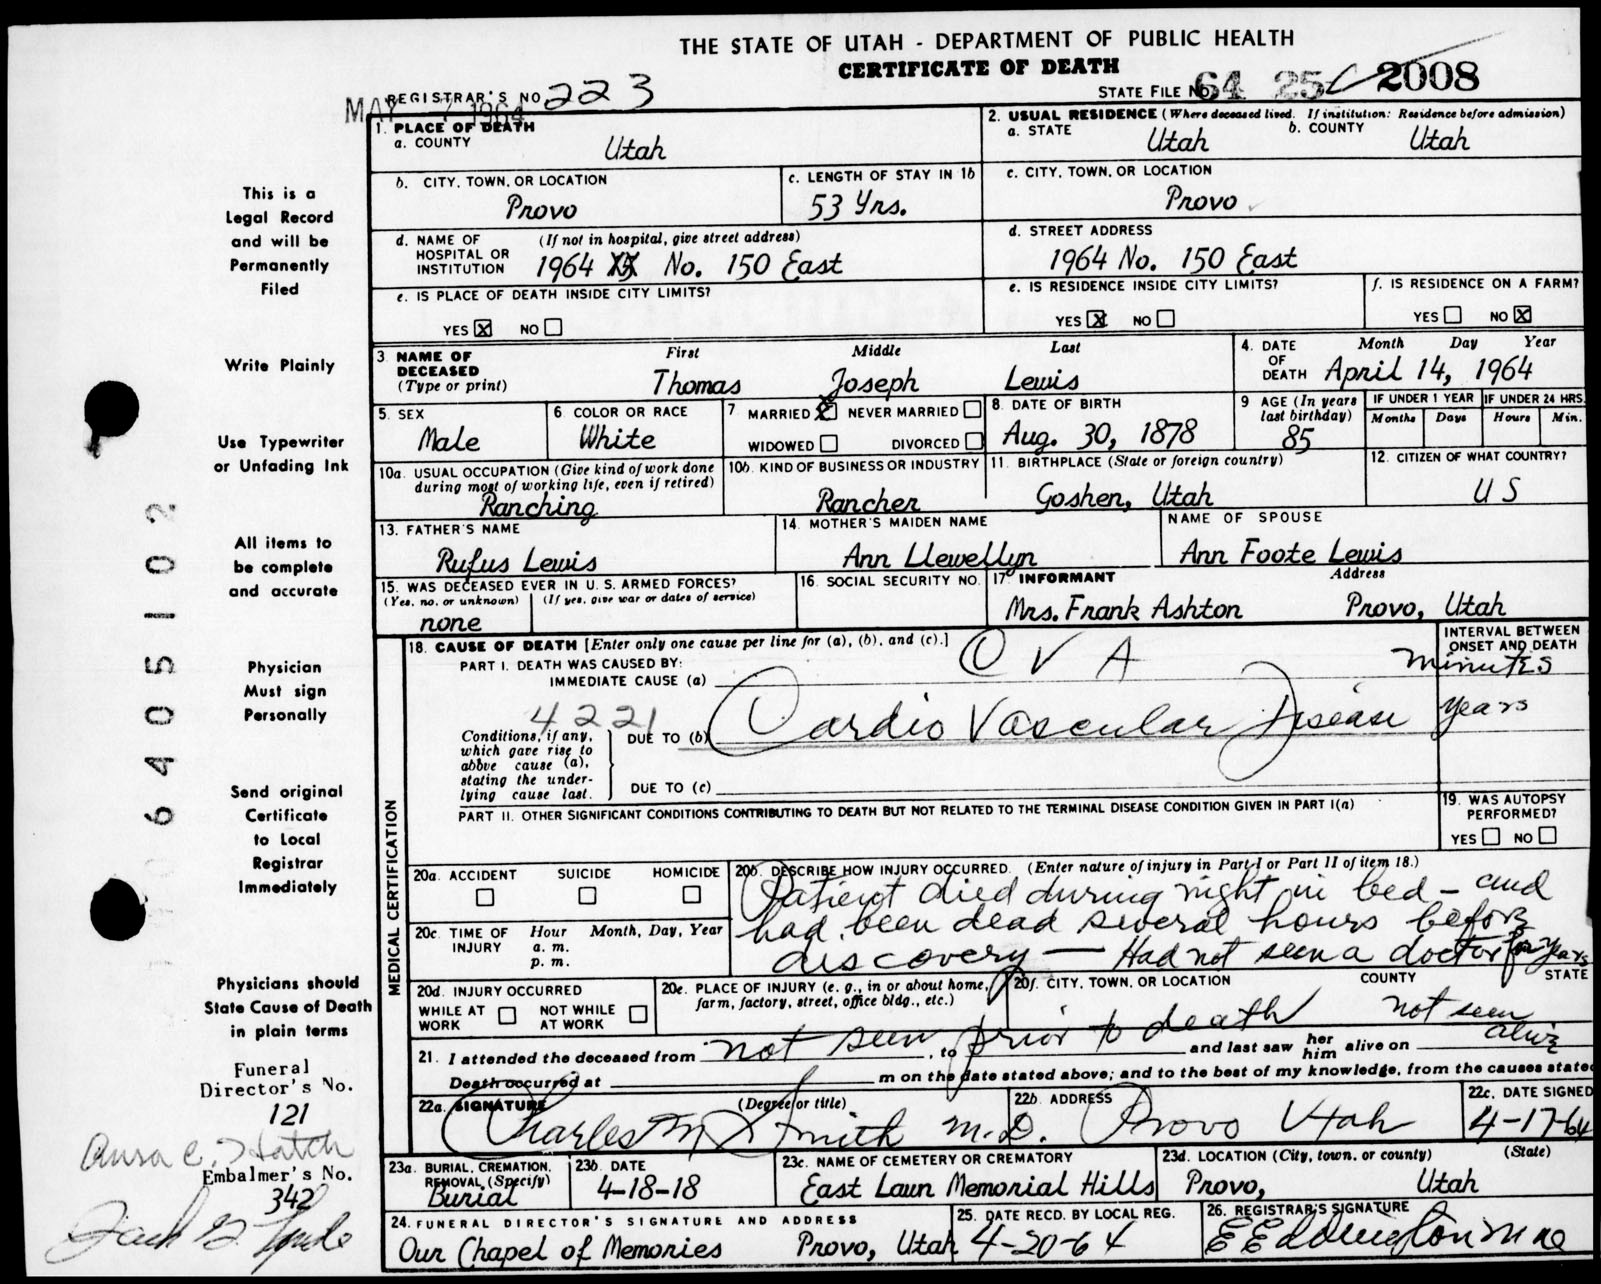 THE STATE OF UTAH - DEPARTMENT OF PUBLIC HEALTH
CERTIFICATE OF DEATH
REGISTRAR'S NO. 223
STATE FILE NO. 64 25 2008
MAY 1964
1. PLACE OF DEATH
a. COUNTY Utah
2. USUAL RESIDENCE (Where deceased lived. If institution: Residence before admission)
a. STATE Utah b. COUNTY Utah
b. CITY, TOWN, OR LOCATION Provo
c. LENGTH OF STAY IN 1b 53 Yrs.
c. CITY, TOWN, OR LOCATION Provo
d. NAME OF HOSPITAL OR INSTITUTION (If not in hospital, give street address) 1964 No. 150 East
d. STREET ADDRESS 1964 No. 150 East
e. IS PLACE OF DEATH INSIDE CITY LIMITS?
YES X NO
e. IS RESIDENCE INSIDE CITY LIMITS?
YES X NO
f. IS RESIDENCE ON A FARM?
YES NO X
3. NAME OF DECEASED (Type or print)
First Middle Last
Thomas Joseph Lewis
4. DATE OF DEATH Month Day Year
April 14, 1964
5. SEX Male
6 COLOR OR RACE White
7 MARRIED X NEVER MARRIED
WIDOWED DIVORCED
8. DATE OF BIRTH Aug. 30, 1878
9 AGE (In years last birthday) 85
IF UNDER 1 YEAR Months Days
IF UNDER 24 HRS. Hours Min.
10a. USUAL OCCUPATION (Give kind of work done during most of working life, even if retired) Ranching
10b. KIND OF BUSINESS OR INDUSTRY Rancher
11. BIRTHPLACE (State or foreign country) Goshen, Utah
12. CITIZEN OF WHAT COUNTRY? U S
13. FATHER'S NAME Rufus Lewis
14. MOTHER'S MAIDEN NAME Ann Llewellyn
NAME OF SPOUSE Ann Foote Lewis
15. WAS DECEASED EVER IN U. S. ARMED FORCES?
(Yes, no, or unknown) (If yes, give war or dates of service)
none
16. SOCIAL SECURITY NO.
17 INFORMANT Address
Mrs. Frank Ashton Provo, Utah
18. CAUSE OF DEATH [Enter only one cause per line for (a), (b), and (c).]
INTERVAL BETWEEN ONSET AND DEATH
PART I. DEATH WAS CAUSED BY:
IMMEDIATE CAUSE (a) C V A minutes
4221
Conditions, if any, which gave rise to above cause (a), stating the underlying cause last.
DUE TO (b) Cardio Vascular Disease years
DUE TO (c)
PART II. OTHER SIGNIFICANT CONDITIONS CONTRIBUTING TO DEATH BUT NOT RELATED TO THE TERMINAL DISEASE CONDITION GIVEN IN PART I(a)
19. WAS AUTOPSY PERFORMED?
YES NO
MEDICAL CERTIFICATION
20a. ACCIDENT SUICIDE HOMICIDE
20b. DESCRIBE HOW INJURY OCCURRED. (Enter nature of injury in Part I or Part II of item 18.)
Patient died during night in bed - and
had been dead several hours before
discovery — Had not seen a doctor for years
20c. TIME OF INJURY Hour a. m. p. m. Month, Day, Year
20d. INJURY OCCURRED
WHILE AT WORK NOT WHILE AT WORK
20e. PLACE OF INJURY (e. g., in or about home, farm, factory, street, office bldg., etc.)
20f. CITY, TOWN, OR LOCATION COUNTY STATE
21. I attended the deceased from not seen, to prior to death and last saw her him alive on not seen alive
Death occurred at m on the date stated above; and to the best of my knowledge, from the causes stated
22a. SIGNATURE (Degree or title)
Charles M Smith M.D.
22b. ADDRESS Provo Utah
22c. DATE SIGNED 4-17-64
23a. BURIAL, CREMATION, REMOVAL (Specify) Burial
23b. DATE 4-18-18
23c. NAME OF CEMETERY OR CREMATORY East Lawn Memorial Hills
23d. LOCATION (City, town, or county) (State)
Provo, Utah
24. FUNERAL DIRECTOR'S SIGNATURE AND ADDRESS
Our Chapel of Memories Provo, Utah
25. DATE RECD. BY LOCAL REG. 4-20-64
26. REGISTRAR'S SIGNATURE
This is a
Legal Record
and will be
Permanently
Filed
Write Plainly
Use Typewriter
or Unfading Ink
All items to
be complete
and accurate
Physician
Must sign
Personally
Send original
Certificate
to Local
Registrar
Immediately
Physicians should
State Cause of Death
in plain terms
Funeral
Director's No.
121
Embalmer's No.
342
6405102